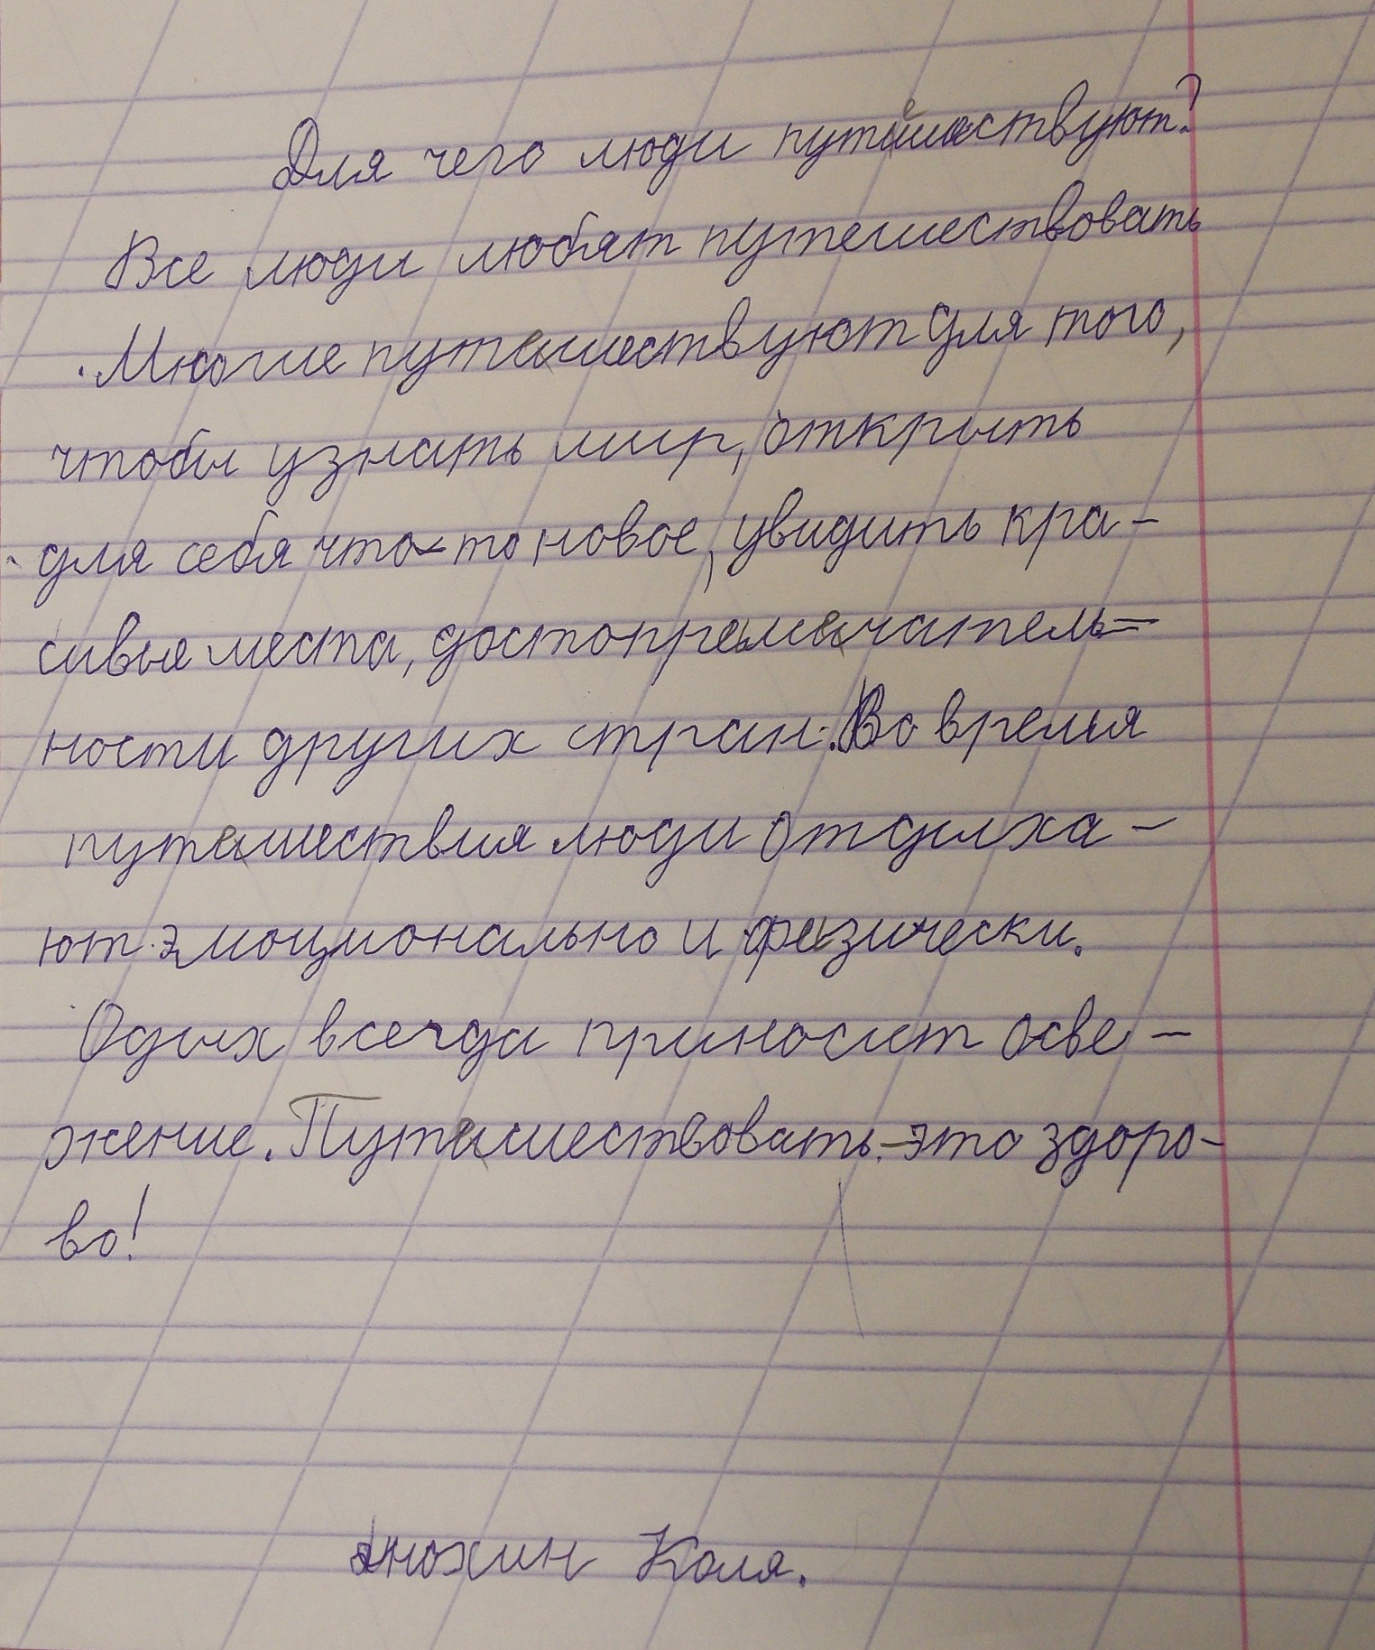 Для чего люди путешествуют?
Все люди любят путешествовать
. Многие путешествуют для того,
чтобы узнать мир, открыть
для себя что-то новое, увидить кра-
сивые места, достопремечатель-
ности других стран. Во время
путешествия люди отдыха-
ют эмоционально и физически.
Одых всегда приносит осве-
жение. Путешествовать - это здоро-
во!
Анохин Коля.